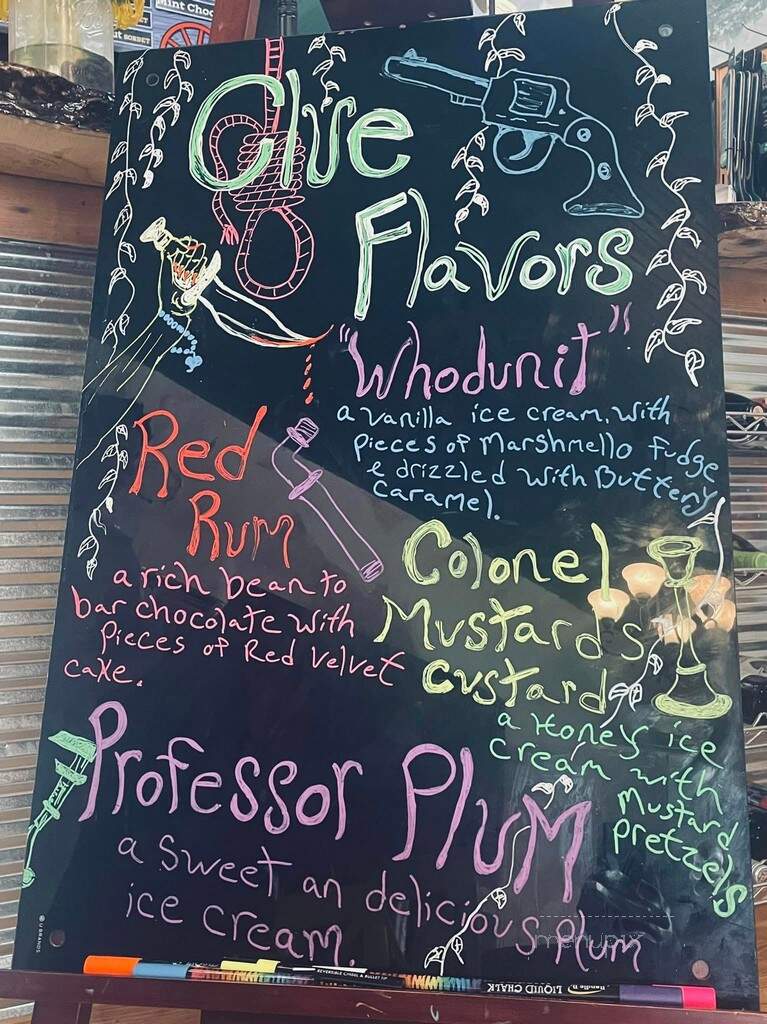 Mint Choc
SORBET
Clue
Flavors
"Whodunit"
a vanilla ice cream, with
pieces of Marshmello Fudge
& drizzled with Buttery
caramel.
Red
Rum
a rich bean to
bar chocolate with
pieces of Red Velvet
cake.
Colonel
Mustards
custard
a Honey ice
cream with
Mustard
pretzels
Professor Plum
a sweet an delicious Plum
ice cream.
menupix
U BRANDS
REVERSIBLE CHISEL & BULLET TIP
LIQUID CHALK